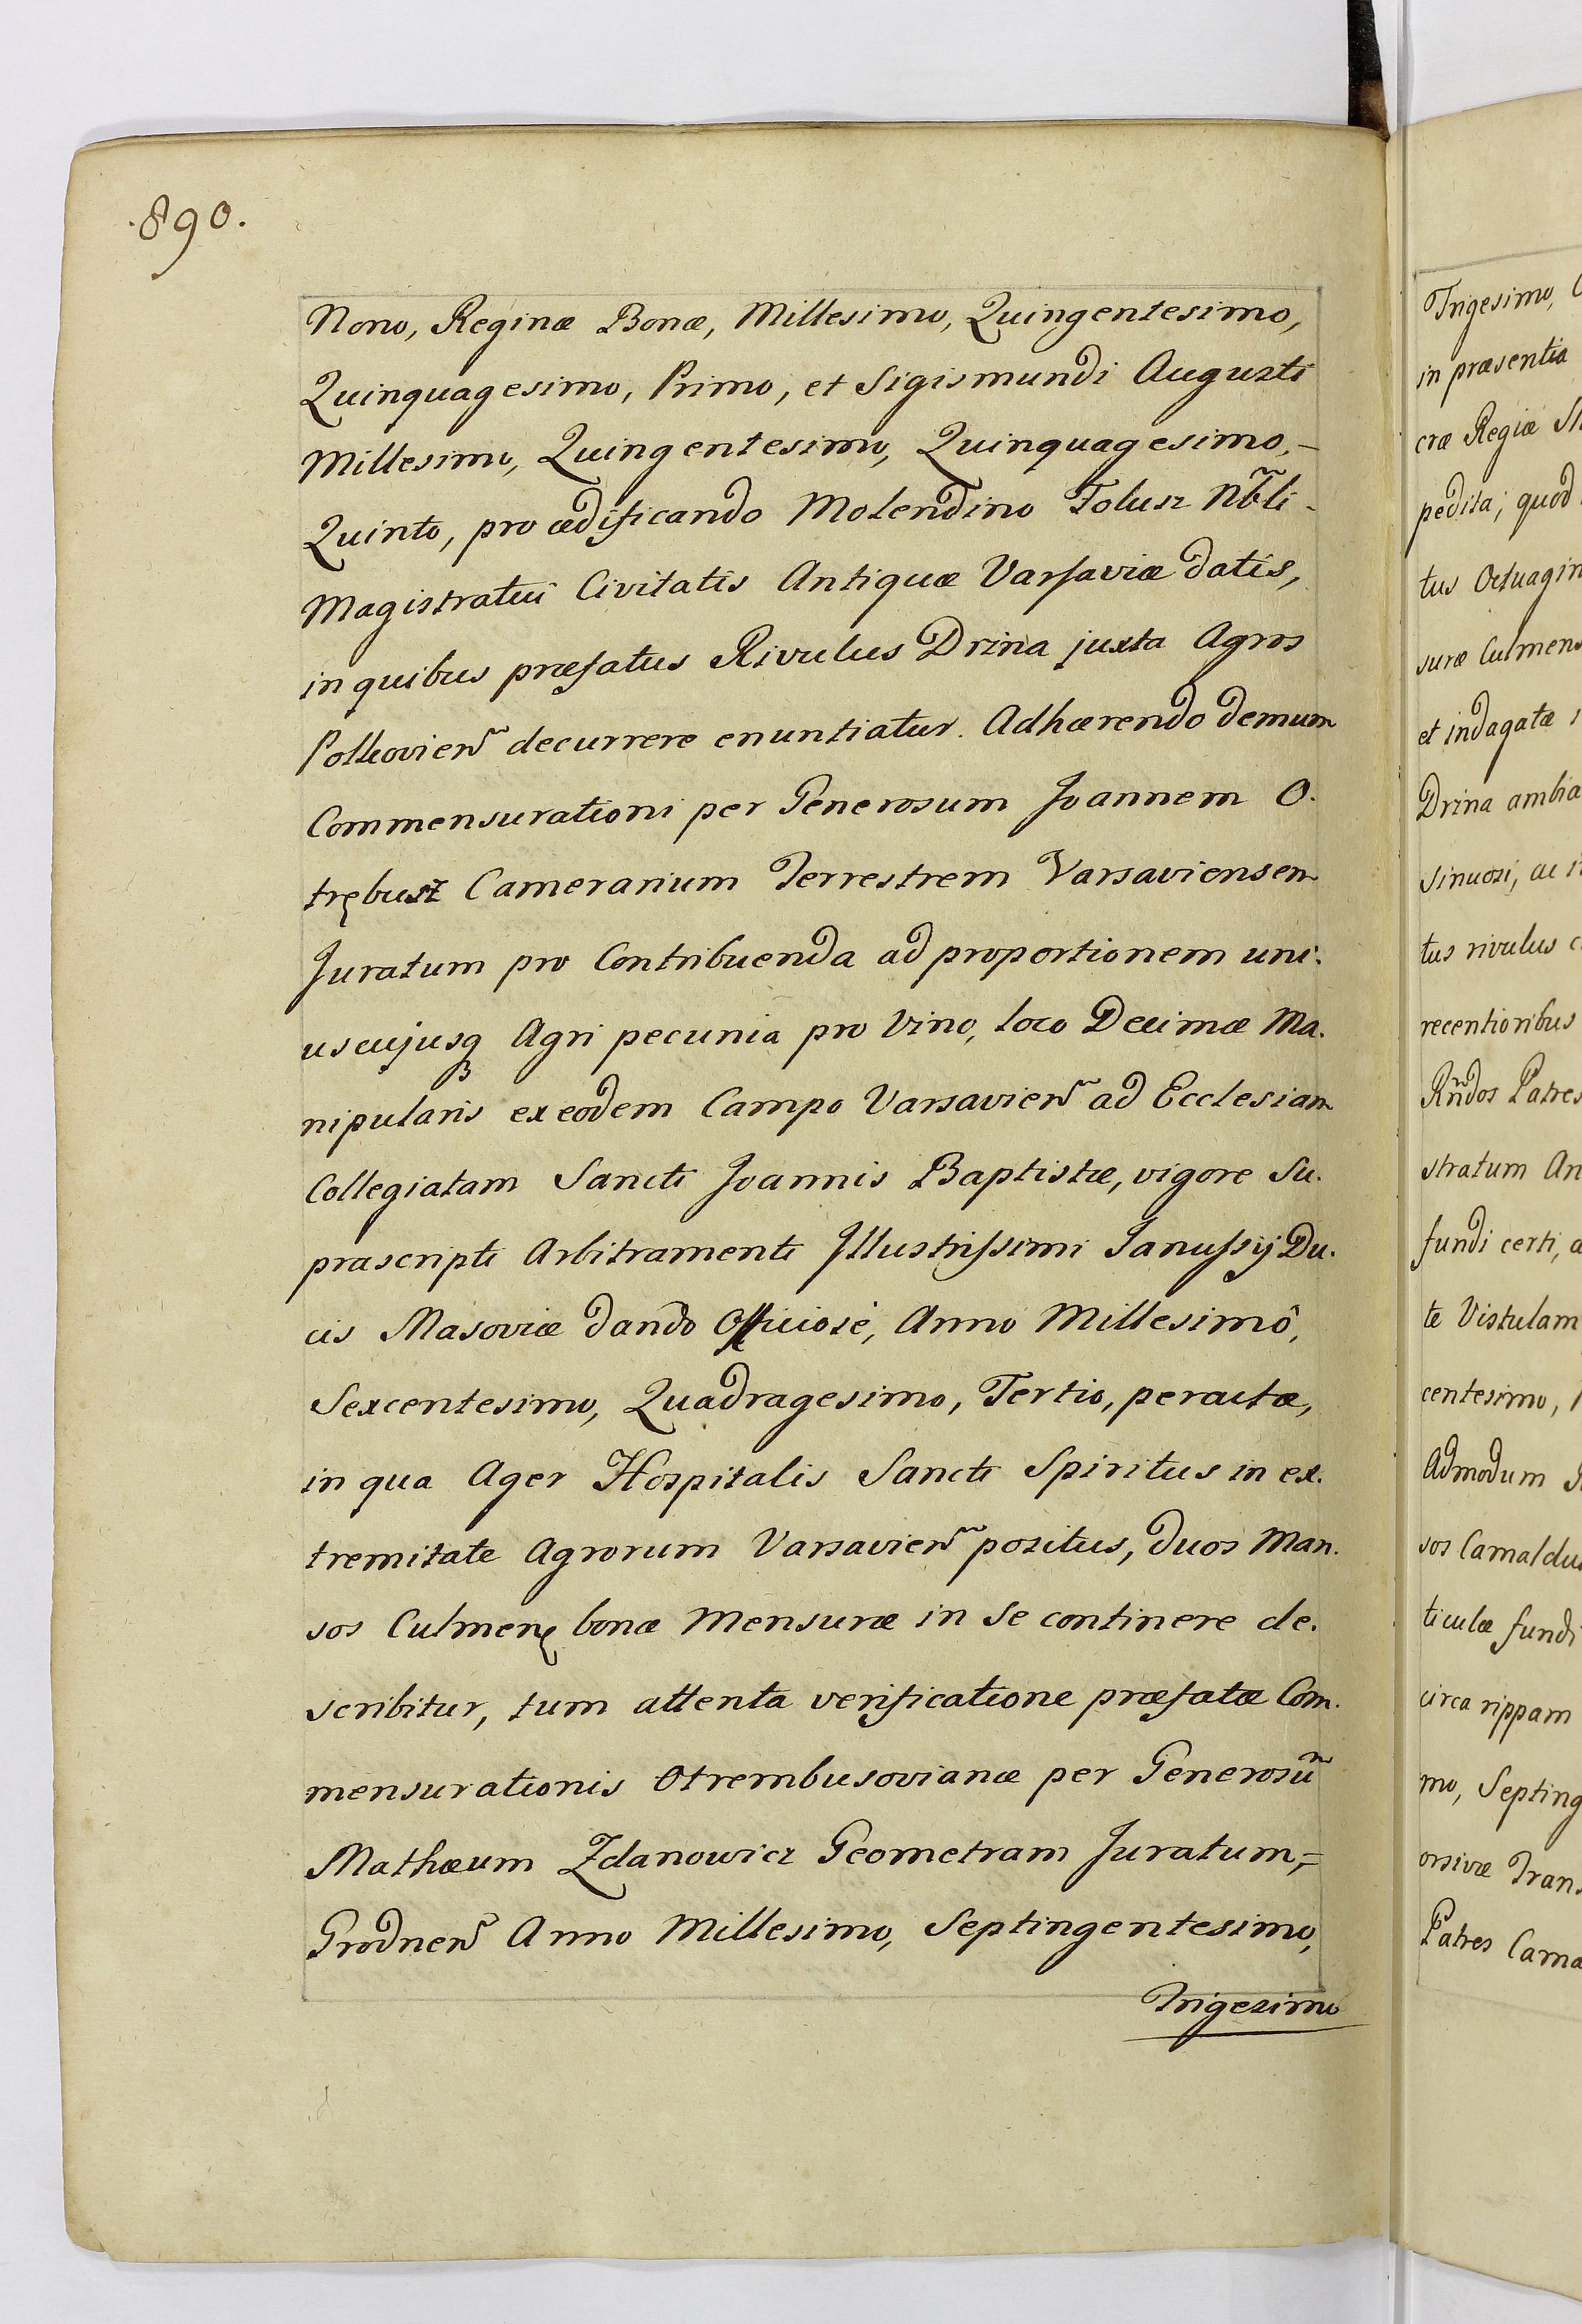 .890.
Nono, Reginæ Bonæ, Millesimo, Quingentesimo,
Quinquagesimo, Primo, et Sigismundi Augusti
Millesimo, Quingentesimo, Quinquagesimo,-
Quinto, pro ædificando Molendino Folusz Nb̃li-
Magistratui Civitatis Antiquæ Varsaviæ datis,
in quibus præfatus Rivulus Drzna juxta Agros
Polkovien̄ decurrere enuntiatur. Adhærendo demum
Commensurationi per Generosum Joannem O.
trębusz Camerarium Terrestrem Varsaviensem
Juratum pro Contribuenda ad proportionem uni.
uscujusq Agri pecunia pro Vino, loco Decimæ Ma.
nipularis ex eodem Campo Varsavien̄ ad Ecclesiam
Collegiatam Sancti Joannis Baptistæ, vigore Su.
prascripti Arbitramenti Illustrissimi Janussij Du.
cis Masoviæ dando Officiosè, Anno Millesimô,
Sexcentesimo, Quadragesimo, Tertio, peractæ,
in qua Ager Hospitalis Sancti Spiritus in ex.
tremitate Agrorum Varsavien̄ positus, duos Man.
sos Culmen bonæ Mensuræ in se continere de.
scribitur, tum attenta verificatione præfatæ Com.
mensurationis Otrembusovianæ per Generosū
Mathæum Zdanowicz Geometram Juratum,=
Grodnen̄ Anno Millesimo, Septingentesimo,
Trigesimo
Trigesimo,
in præsentia
cræ Regiæ
pedita; quod
tus Octuagin
suræ Culmens
et indagatæ
Drzna ambia
sinuosi, ac
tus rivulus
recentioribus
Rñdos Patres
stratum An
fundi certi, a
te Vistulam
centesimo,
Admodum
sos Camaldu
ticulæ fundi
circa rippam
mo, Septing
orsivæ Trans
Patres Cama